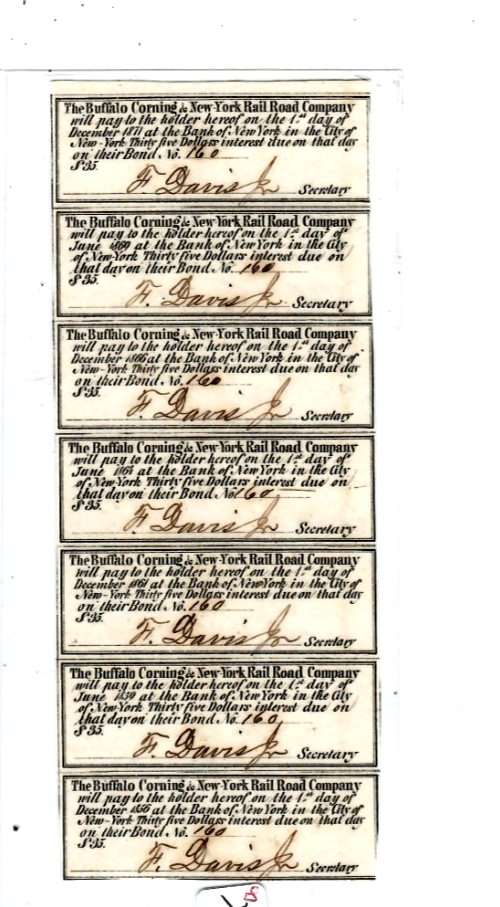 The Buffalo Corning & New-York Rail Road Company
will pay to the holder hereof on the 1.st day of
December 1871 at the Bank of New York in the City of
New-York Thirty five Dollars interest due on that day
on their Bond No. 160
$35.
F. Davis Jr Secretary
The Buffalo Corning & New-York Rail Road Company
will pay to the holder hereof on the 1.st day of
June 1869 at the Bank of New York in the City
of New-York Thirty five Dollars interest due on
that day on their Bond No. 160
$35.
F. Davis Jr Secretary
The Buffalo Corning & New-York Rail Road Company
will pay to the holder hereof on the 1.st day of
December 1866 at the Bank of New York in the City of
New-York Thirty five Dollars interest due on that day
on their Bond No. 160
$35.
F. Davis Jr Secretary
The Buffalo Corning & New-York Rail Road Company
will pay to the holder hereof on the 1.st day of
June 1864 at the Bank of New York in the City
of New-York Thirty five Dollars interest due on
that day on their Bond No. 160
$35.
F. Davis Jr Secretary
The Buffalo Corning & New-York Rail Road Company
will pay to the holder hereof on the 1.st day of
December 1861 at the Bank of New York in the City of
New-York Thirty five Dollars interest due on that day
on their Bond No. 160
$35.
F. Davis Jr Secretary
The Buffalo Corning & New-York Rail Road Company
will pay to the holder hereof on the 1.st day of
June 1859 at the Bank of New York in the City
of New-York Thirty five Dollars interest due on
that day on their Bond No. 160
$35.
F. Davis Jr Secretary
The Buffalo Corning & New-York Rail Road Company
will pay to the holder hereof on the 1.st day of
December 1856 at the Bank of New York in the City of
New-York Thirty five Dollars interest due on that day
on their Bond No. 160
$35.
F. Davis Jr Secretary